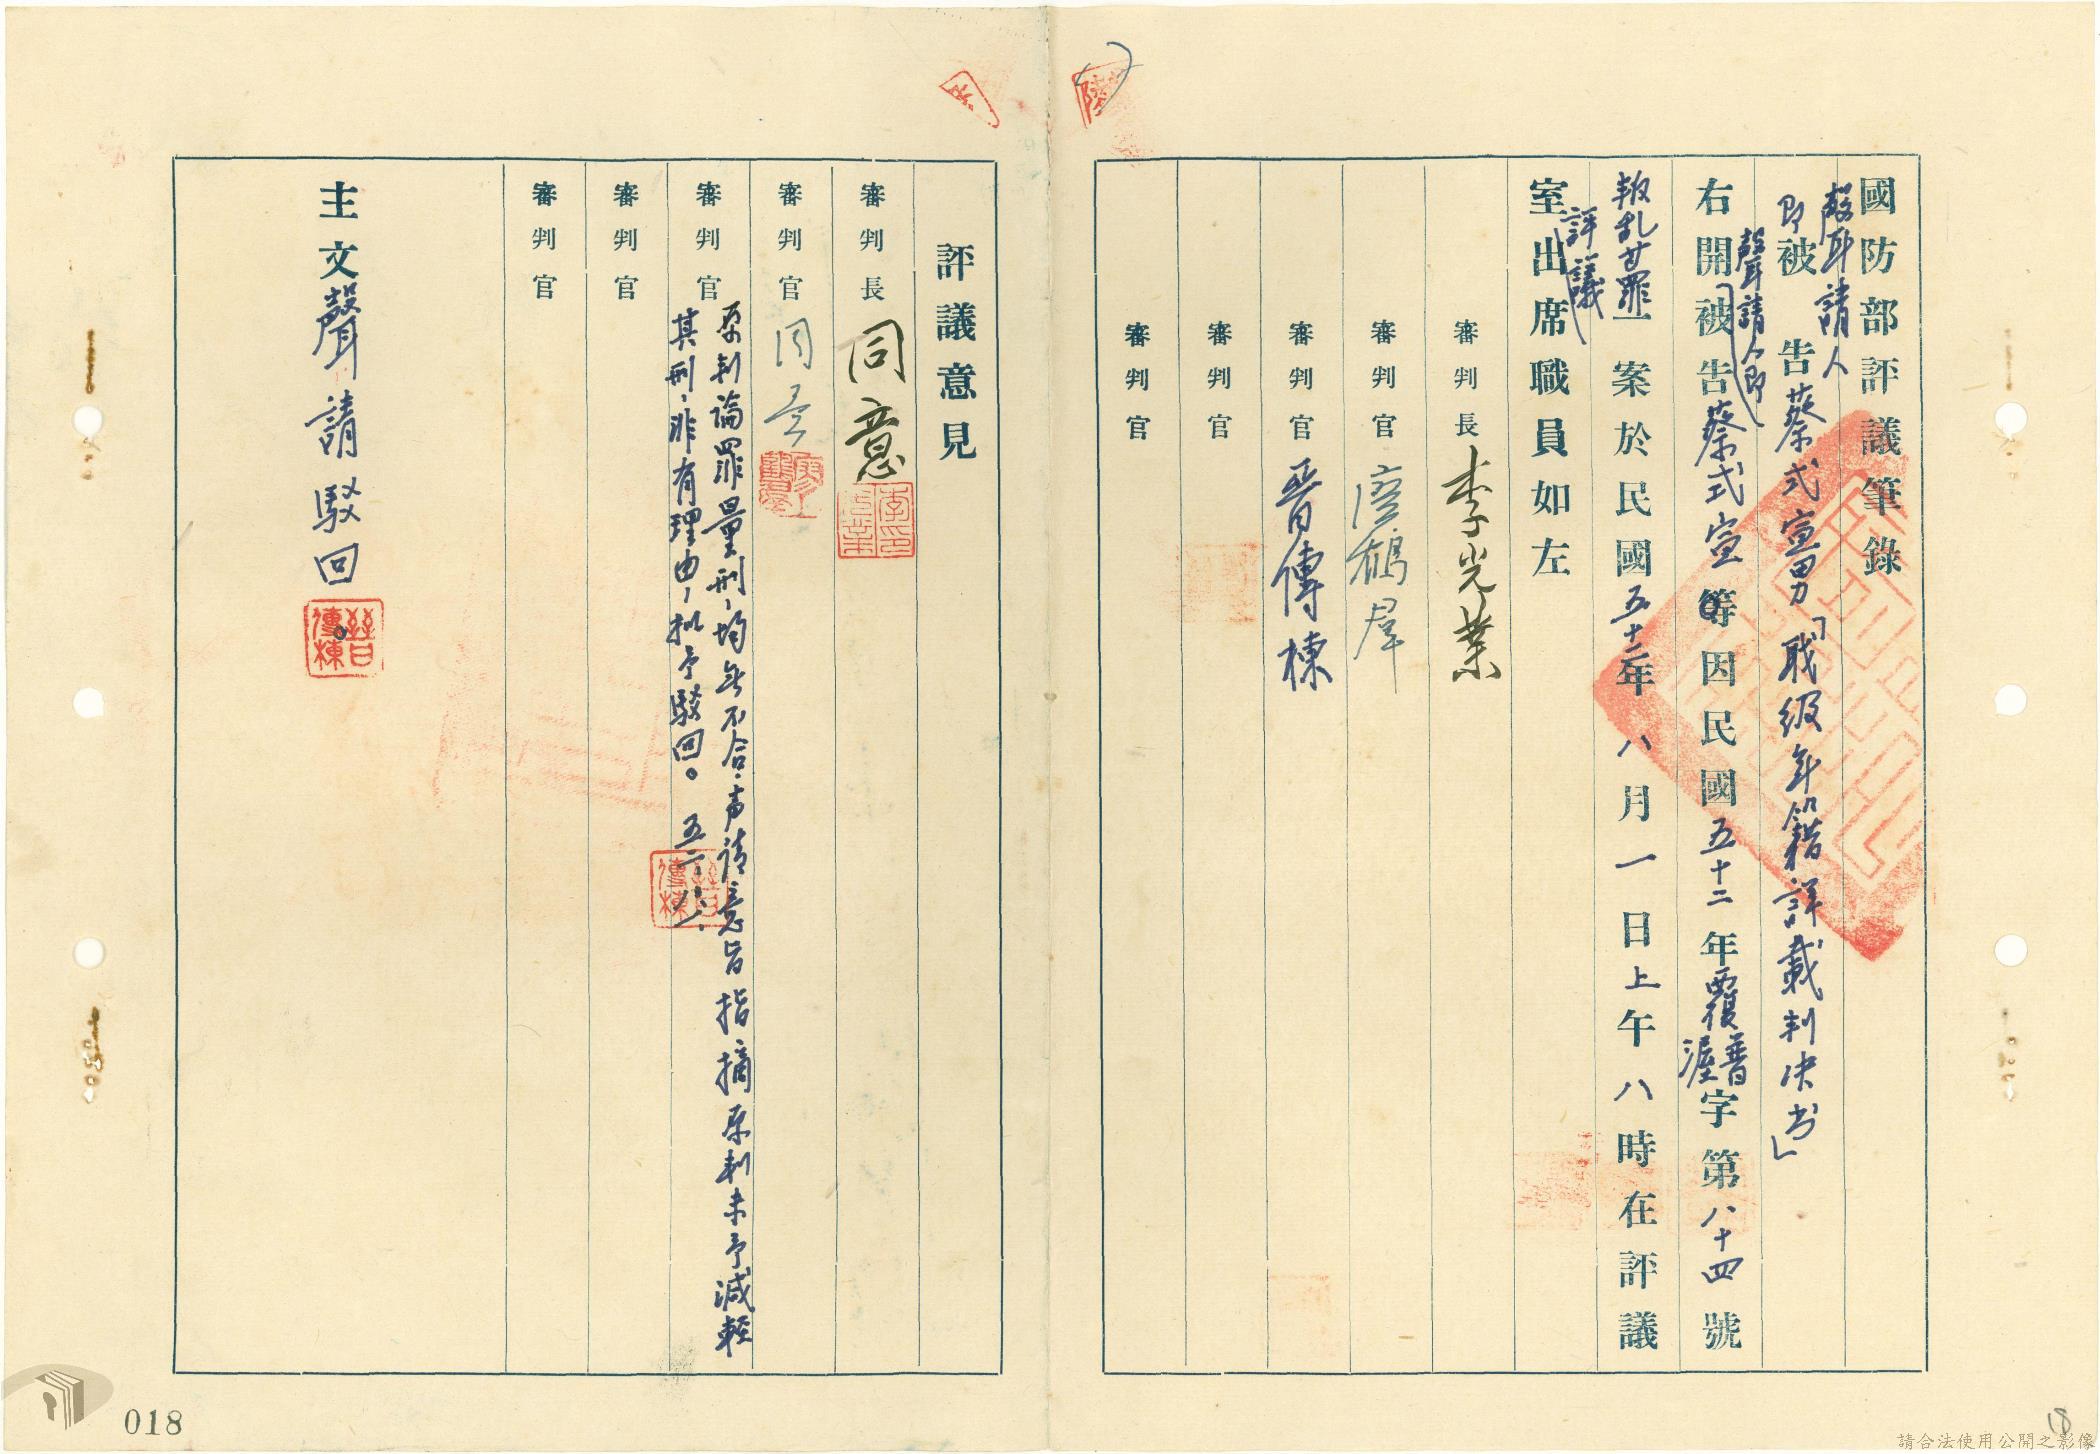 國防部評議筆錄
聲請人
即被告蔡式宣男「職級年籍詳載判決书」
聲請人即
右開被告蔡式宣等因民國五十二年覆普渥字第八十四號
叛乱廿罪一案於民國五十二年八月一日上午八時在評議
評議
室出席職員如左
審判長李光業
審判官
鶴羣
審判官晉傳棟
審判官
審判官
評議意見
審判長同意
審判官同意
審判官原判論罪量刑,均無不合,声请意旨指摘原判未予減輕
其刑,非有理由,拟予駁回。五二、八、一、
審判官
審判官
主文聲請駁回。
晉傳棟
018
18
請合法使用公開之影像